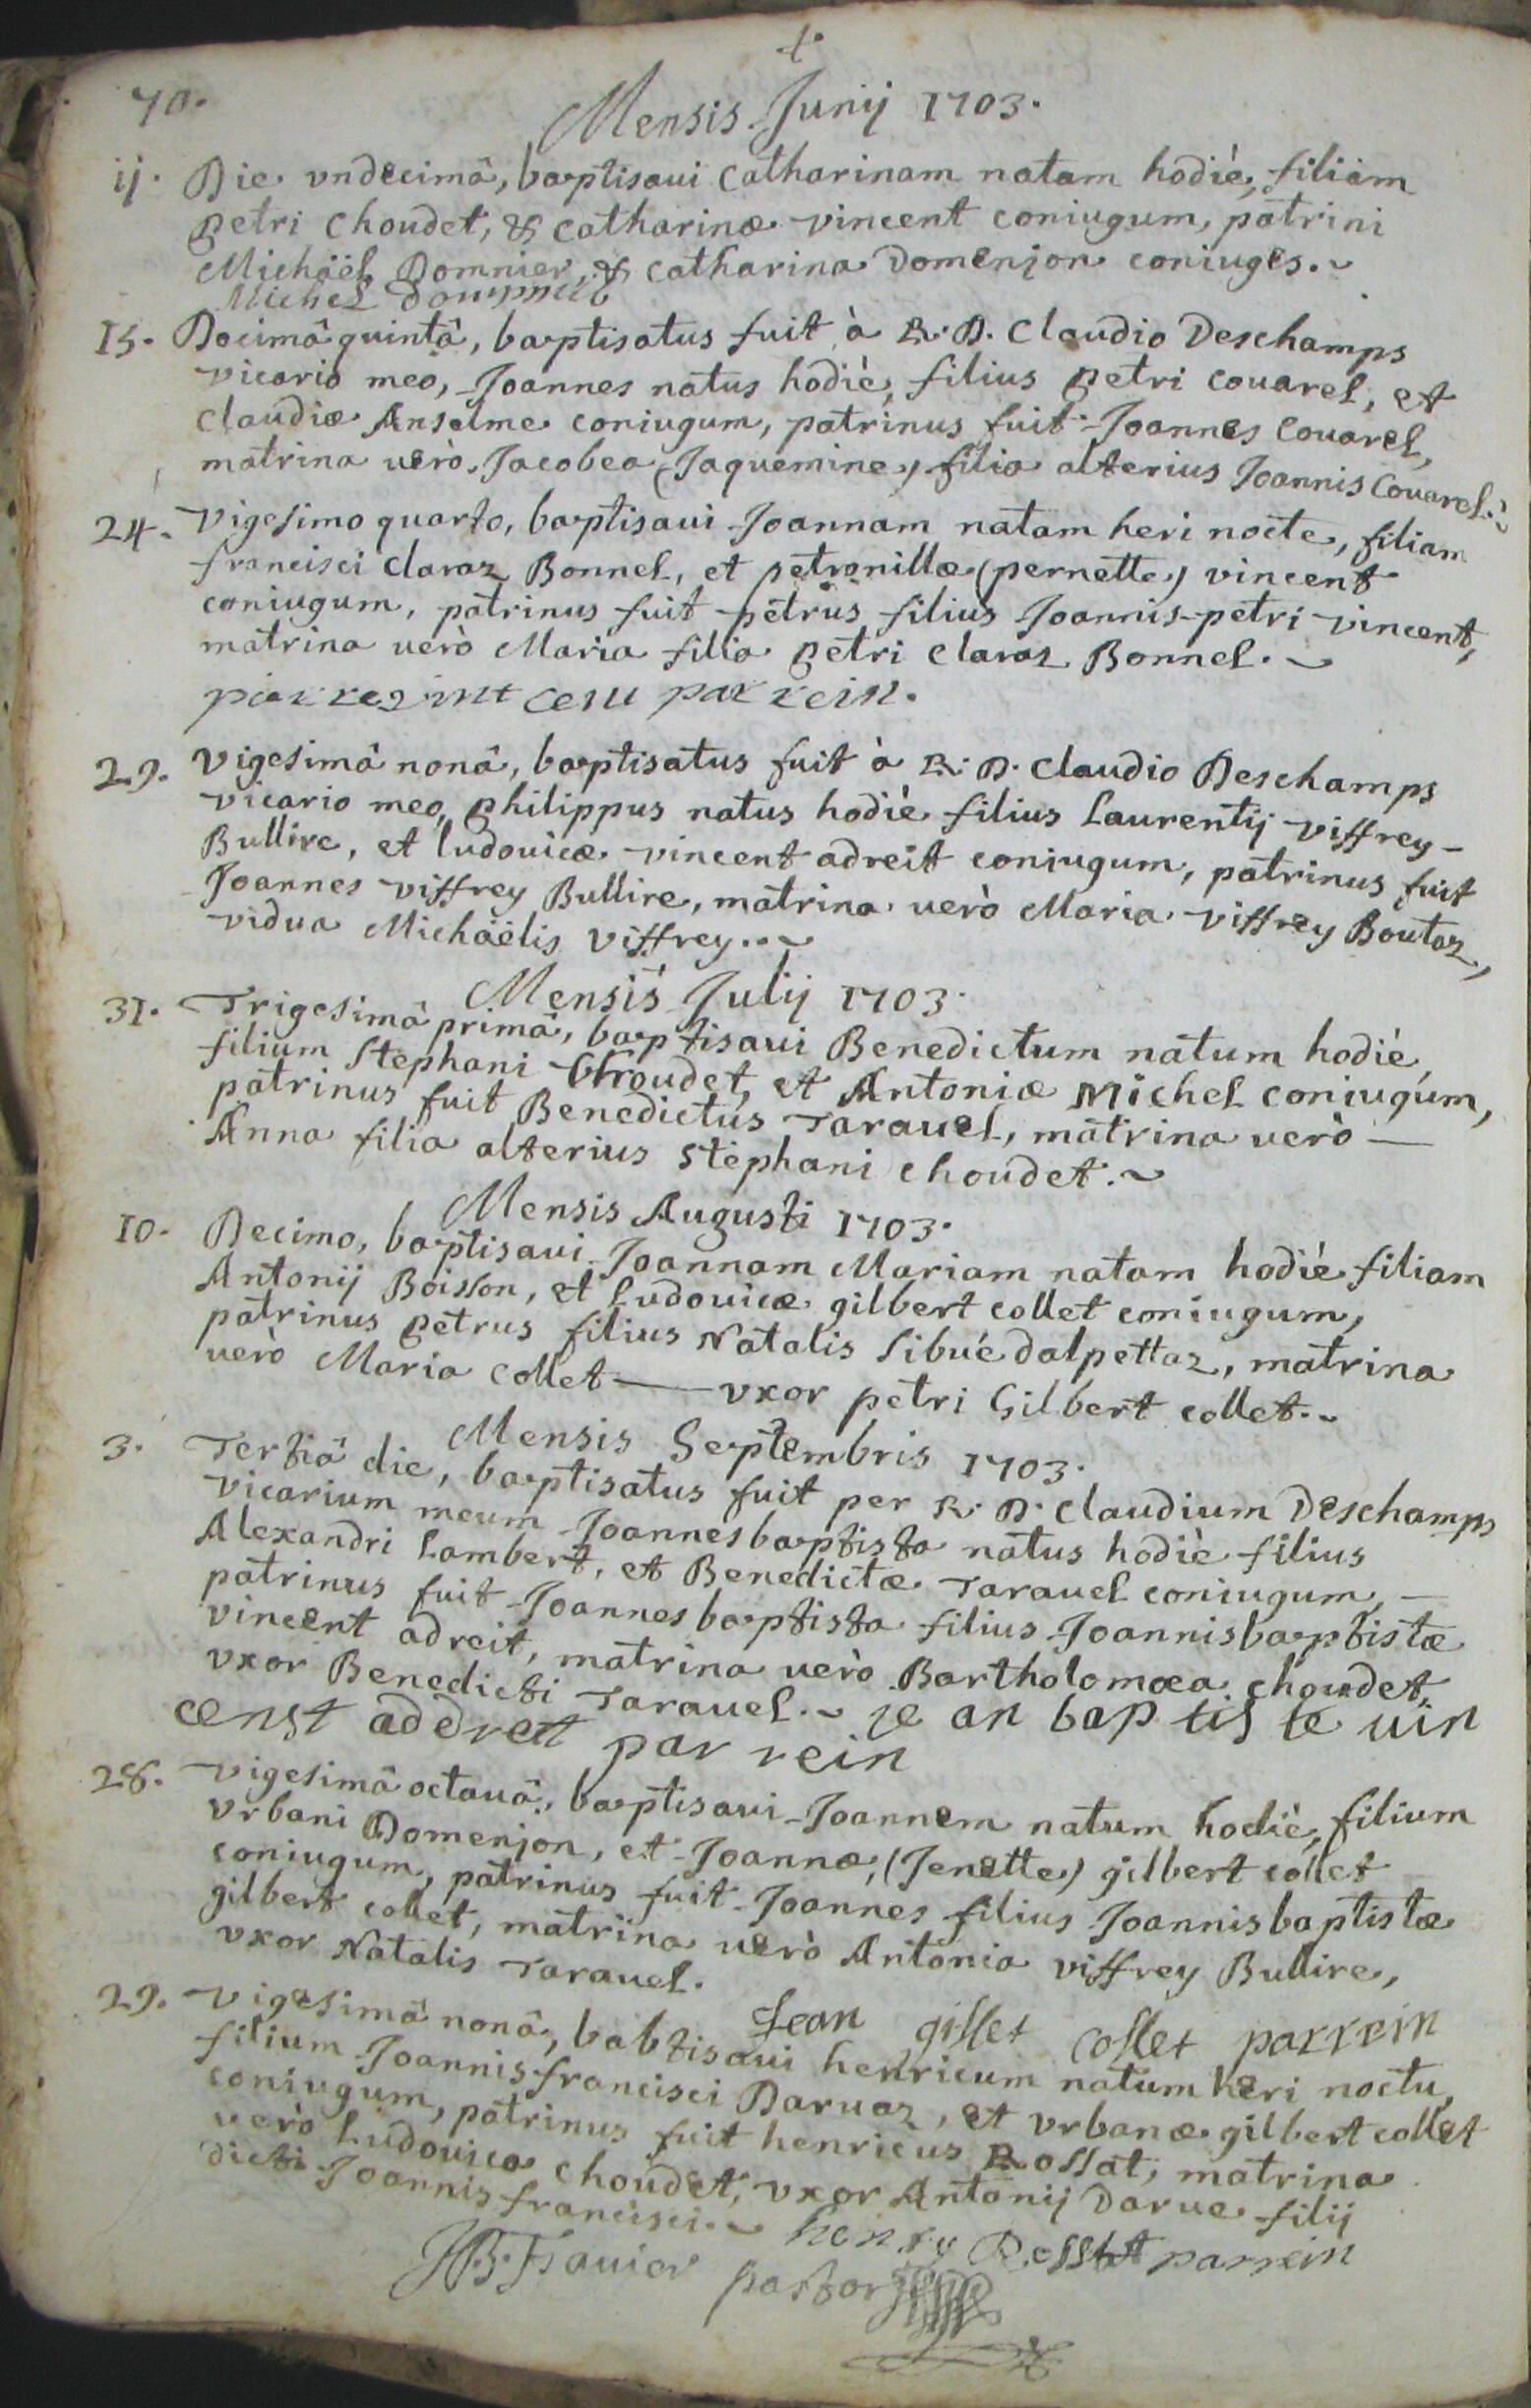 70.
Mensis Junij 1703.
ij. Die vndecimâ, baptisaui Catharinam natam hodiè, filiam
petri choudet, & catharinæ vincent coniugum, patrini
Michäel Domnier, & catharina Domenjon coniuges.
Michel
15. Decimâ quintâ, baptisatus fuit à R. D. Claudio Deschamps
vicario meo, Joannes natus hodiè, filius petri couarel, et
Claudiæ Anselme coniugum, patrinus fuit Joannes Couarel,
matrina uerò, Jacobea (Jaquemine) filia alterius Joannis Couarel.
24. Vigesimo quarto, baptisaui Joannam natam heri nocte, filiam
francisci Claraz Bonnel, et petronillæ (pernette) vincent
coniugum, patrinus fuit petrus filius Joannis-petri vincent,
matrina uerò Maria filia petri Claraz Bonnel.
parrein.
29. Vigesimâ nonâ, baptisatus fuit à R. D. Claudio Deschamps
vicario meo, philippus natus hodiè filius Laurentij viffrey-
Bullire, et ludouicæ vincent adreit coniugum, patrinus fuit
Joannes viffrey Bullire, matrina uerò Maria viffrey Boutaz,
vidua Michäelis viffrey.
Mensis Julij 1703.
31. Trigesimâ primâ, baptisaui Benedictum natum hodiè,
filium Stephani Choudet, et Antoniæ Michel coniugum,
patrinus fuit Benedictus Tarauel, matrina uerò —
Anna filia alterius Stephani choudet.
Mensis Augusti 1703.
10. Decimo, baptisaui Joannam Mariam natam hodiè filiam
Antonij Boisson, et Ludouicæ gilbert collet coniugum,
patrinus petrus filius Natalis Sibué dalpettaz, matrina
uerò Maria Collet — vxor petri Gilbert collet.
Mensis Septembris 1703.
3. Tertiâ die, baptisatus fuit per R. D. Claudium Deschamps
vicarium meum Joannesbaptista natus hodiè filius
Alexandri Lambert, et Benedictæ Tarauel coniugum, —
patrinus fuit Joannesbaptista filius Joannisbaptistæ
vincent adreit, matrina uerò Bartholomæa choudet,
vxor Benedicti Tarauel. je an baptiste uin
censt addreit parrein
28. Vigesimâ octauâ, baptisaui Joannem natum hodiè, filium
Vrbani Domenjon, et Joannæ, (Jenette) gilbert collet
coniugum, patrinus fuit Joannes filius Joannisbaptistæ
gilbert collet, matrina uerò Antonia viffrey Bullire,
vxor Natalis Tarauel.
Jean gilbet collet parrein
29. Vigesimâ nonâ, babtisaui henricum natum heri noctu,
filium Joannisfrancisci Daruaz, et vrbanæ gilbert collet
coniugum, patrinus fuit henricus Rossat, matrina
uerò Ludouica choudet, vxor Antonij Darue filij
dicti Joannisfrancisci.
henry Rossat parrein
pastor